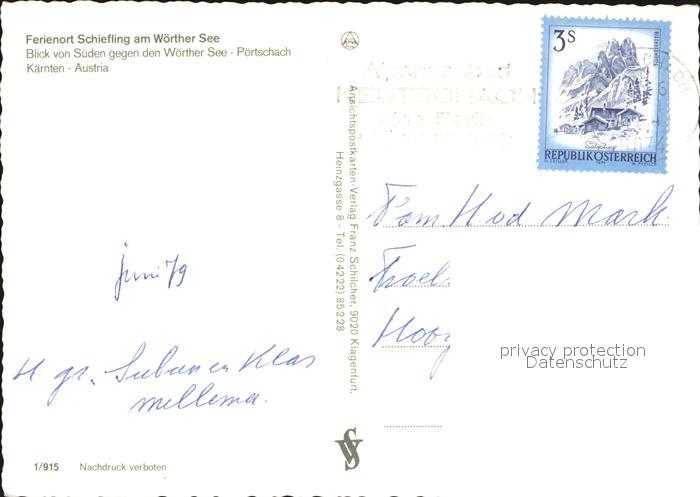 Ferienort Schiefling am Wörther See
Blick von Süden gegen den Wörther See - Pörtschach
Kärnten - Austria
3S
REPUBLIK ÖSTERREICH
Ansichtspostkarten-Verlag Franz Schilcher, 9020 Klagenfurt,
Heinzgasse 8 - Tel. (0 42 22) 85 2 28
Fam. Hud Mark.
Troel
Hoog
juni 79
H. gr. en Klas
Mellema.
privacy protection
Datenschutz
1/915 Nachdruck verboten